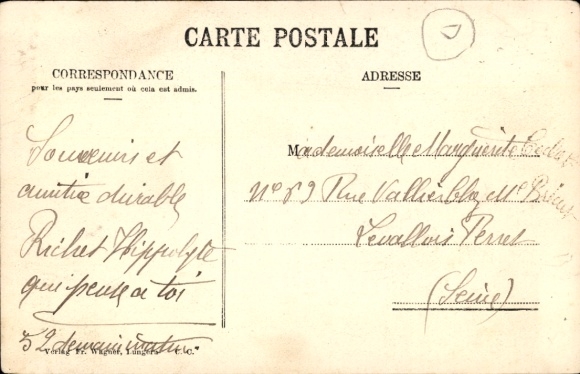 CARTE POSTALE
CORRESPONDANCE
pour les pays seulement où cela est admis.
Souvenirs et
amitié durable
Richet Hippolyte
qui pense a toi
52 demain matin
Verlag Fr. Wagner, Lungern C. C.
ADRESSE
Mademoiselle Marguerite
N° 59 Rue Vallier Chez Mr
Levallois Perret
(Seine)